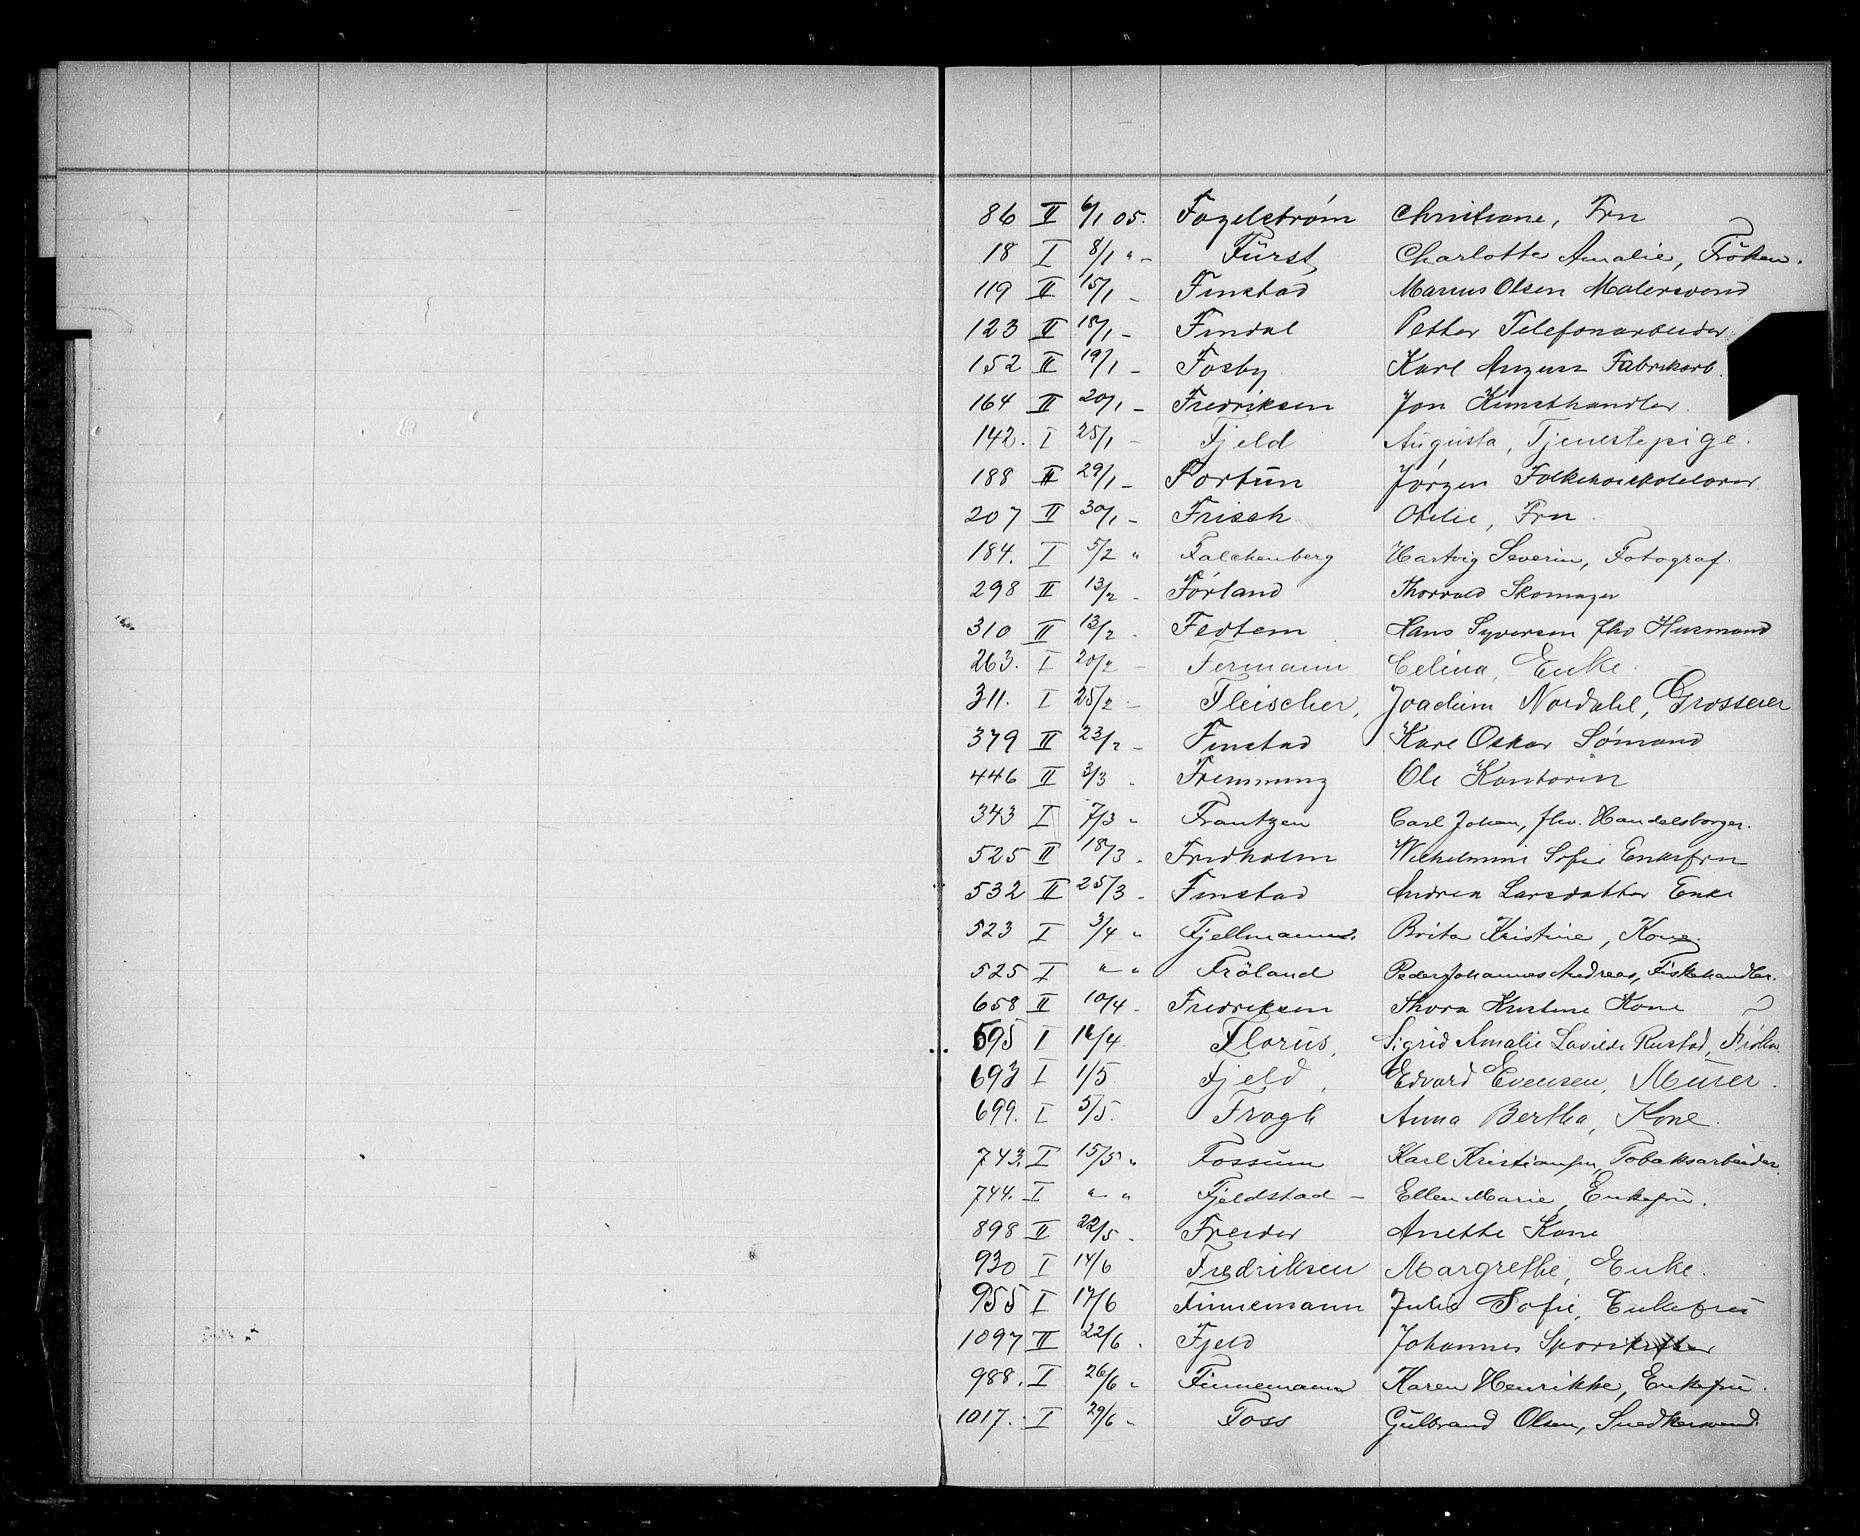 86 II 6/1 05. Fagelstrøm Christiane, Fru
18 I 8/1 " - Fürst, Charlotte Amalie, Fröken.
119 II 15/1 - Finstad Marius Olsen Malersvend
123 II 18/1 - Findal Petter Telefonarbeider
152 II 19/1 - Fosby Karl August Fabrikarb.
164 II 20/1 - Fredriksen Jon Kunsthandler.
142. I 25/1 - Fjeld Augusta, Tjenestepige.
188 II 29/1 - Fortun Jørgen
207 II 30/1 - Frisch Otelie, Fru.
184. I 5/2 " Falchenberg Hartvig Severin, Fotograf.
298 II 13/2 - Førland Thorvald Skomager
310 II 13/2 - Hans Syversen fhv Husmand
263. I 20/2 - Fermann Celina, Enke.
311. I 25/2 - Fleischer, Joachim Nordahl, Grosserer
379 II 23/2 - Finstad Karl Oskar Sømand
446 II 3/3 - Fremming Ole Kantorin
343 I 7/3 " Frantzen Carl Johan, fhv. Handelsborger.
525 II 18/3 - Fredholm Wilhelmine Sofie Enkefru
532 II 25/3 - Finstad Andrea Larsdatter Enke
523 I 3/4 " Fjellmann. Brita Kristine, Kone.
525 I " " Fröland Peder Johannes Andreas, Fiskehandler.
658 II 10/4 - Fredriksen Thora Kristine Kone
595 I 16/4 Florus, Sigrid Amalie Lovilde Rustad, Frøken.
693 I 1/5 Fjeld, Edvard Evensen, Murer.
699. I 5/5. Frogh Anna Bertha, Kone.
743. I 15/5 " Fossum Karl Kristiansen, Tobaksarbeider.
744. I " " Fjeldstad - Ellen Marie, Enkefru.
898 II 22/5 - Freider Anette Kone
930 I 14/6 Fredriksen Margrethe, Enke.
955 I 17/6 Finnemann Julie Sofie, Enkefru
1097 II 22/6 - Fjeld Johannes
988. I 26/6 " Finnemann Karen Henrikke, Enkefru.
1017. I 29/6 " Foss Gulbrand Olsen, Snedkersvend.